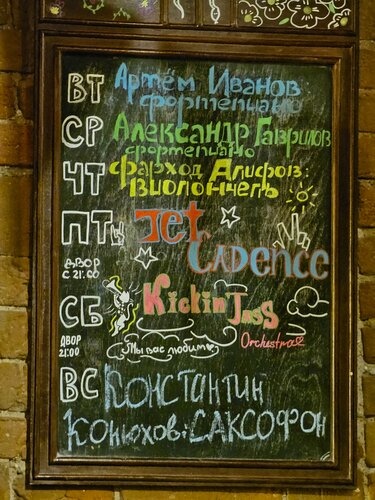 ВТ Артём Иванов
фортепиано
СР Александр Гаврилов
фортепиано
ЧТ Фарход Алифов:
виолончель
ПТц Jet
Cadence
ДВОР
С 21:00
СБ Kickin' Jass
Orchestra
ДВОР
21:00
Мы вас любим
ВС Константин
Конюхов: САКСОФОН